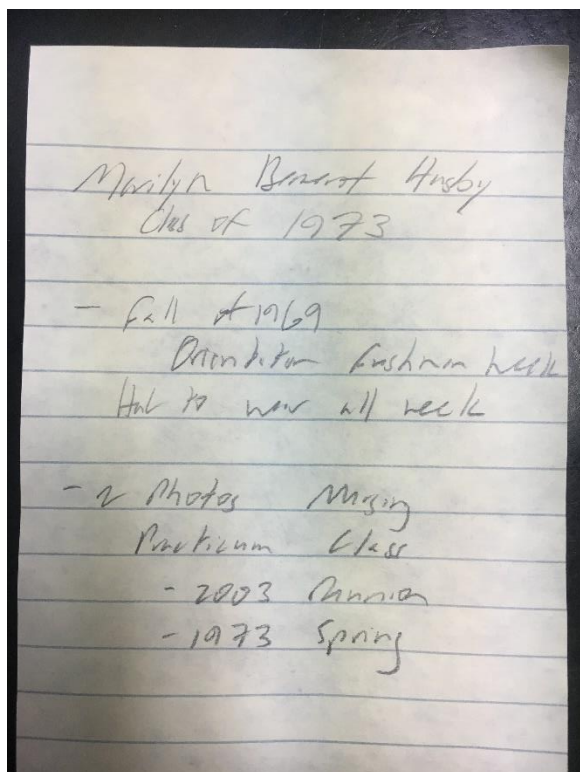 Marilyn Husby
Class of 1973
- Fall of 1969
Orientation Freshman Week
Had to wear all week
- 2 Photos
Practicum Class
- 2003 Reunion
- 1973 Spring